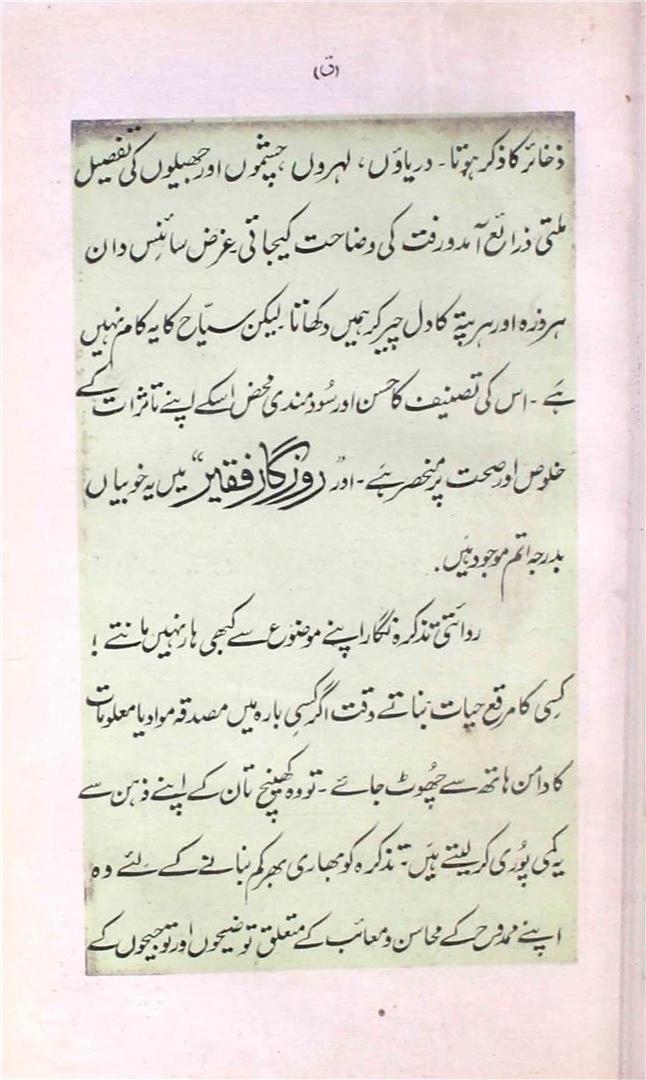 (ق)
ذخائر کا ذکر ہوتا۔ دریاؤں، لہروں، چشموں اور جھیلوں کی تفصیل
ملتی ذرائع آمدورفت کی وضاحت کیجاتی غرض سائنس دان
ہر ذرہ اور ہر پتہ کا دل چیر کر ہمیں دکھاتا لیکن سیّاح کا یہ کام نہیں
ہے۔ اس کی تصنیف کا حسن اور سُود مندی محض اسکے اپنے تاثرات کے
خلوص اور صحت پر منحصر ہے۔ اور "روزگار فقیر" میں یہ خوبیاں
بدرجہ اتم موجود ہیں.
روائتی تذکرہ نگار اپنے موضوع سے کبھی ہار نہیں مانتے!
کِسی کا مرقع حیات بناتے وقت اگر کسِی بارہ میں مصدقہ مواد یا معلومات
کا دامن ہاتھ سے چھُوٹ جائے۔ تو وہ کھینچ تان کے اپنے ذہن سے
یہ کمی پُوری کر لیتے ہیں۔ تذکرہ کو بھاری بھر کم بنانے کے لئے وہ
اپنے ممدوح کے محاسن و معائب کے متعلق توضیحوں اور توجیحوں کے